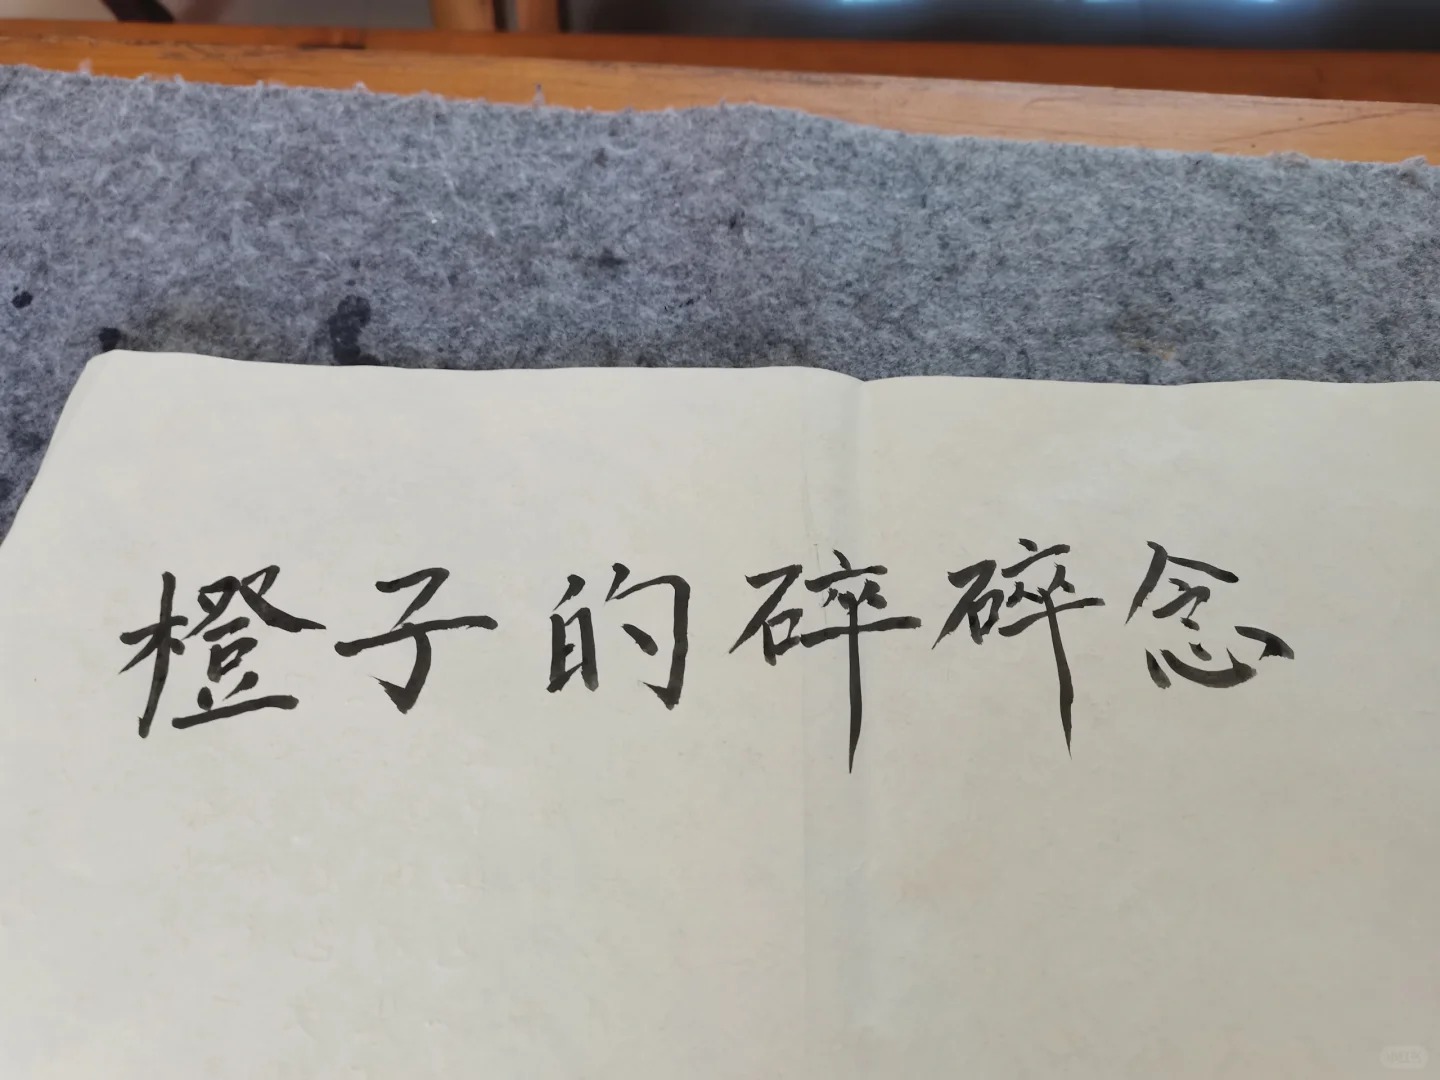 橙子的碎碎念